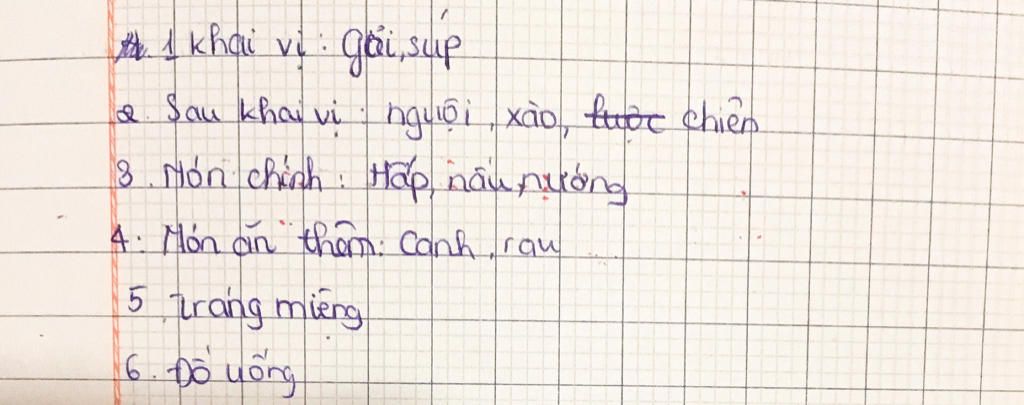 1 Khai vị : gỏi, súp
2. Sau khai vị : nguội, xào, luộc chiên
3. Món chính : Hấp, nấu, nướng
4. Món ăn thêm: Canh, rau
5. Tráng miệng
6. Đồ uống